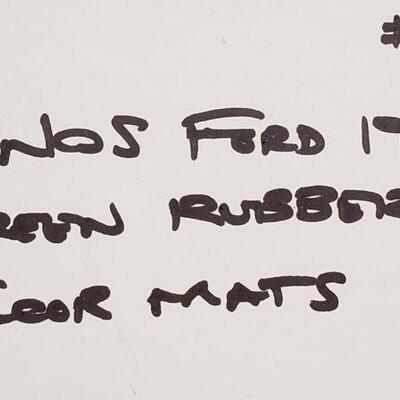 #
NOS FORD 19
REEN RUBBER
LOOR MATS